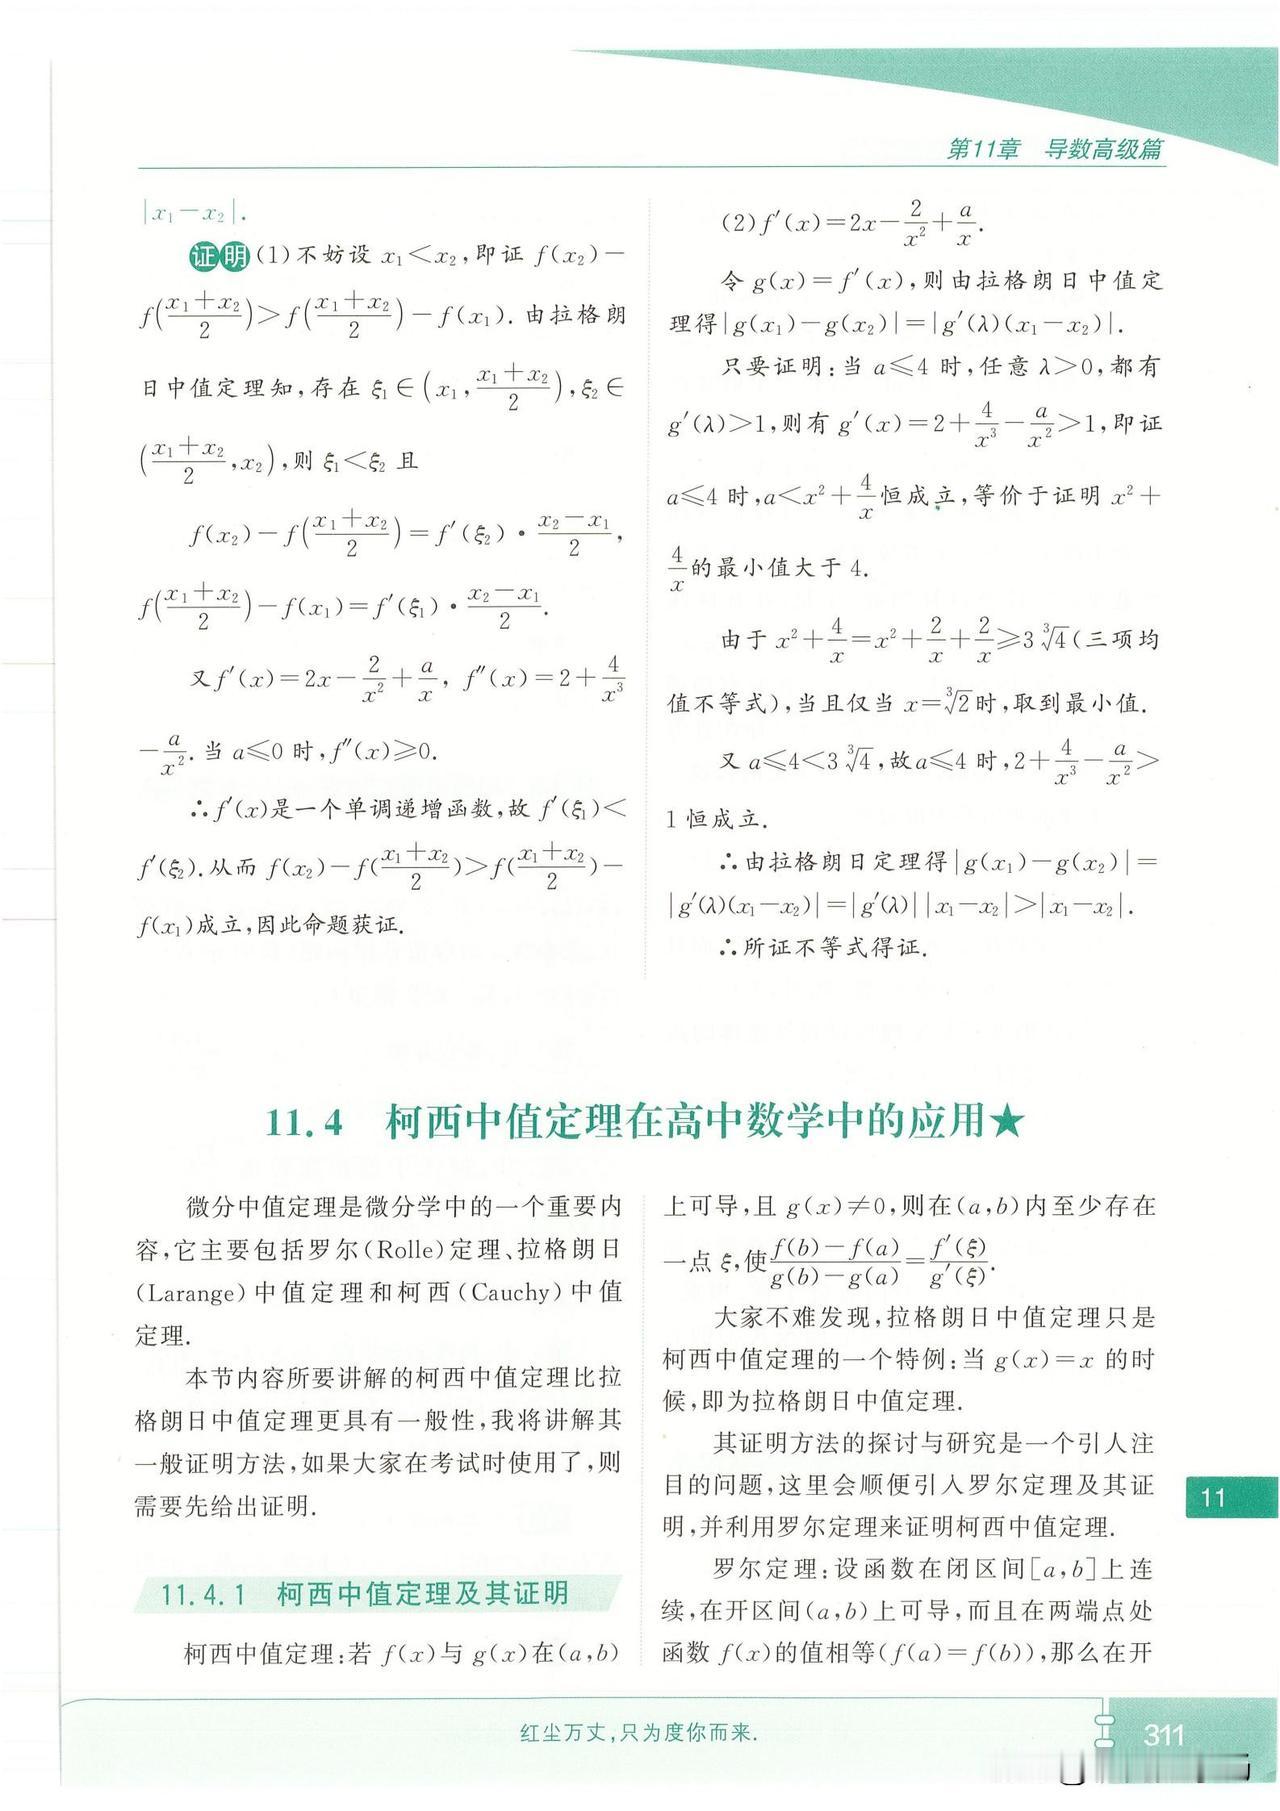 第11章 导数高级篇
|x₁-x₂|.
证明(1)不妨设 x₁<x₂,即证 f(x₂)-
f((x₁+x₂)/2)>f((x₁+x₂)/2)-f(x₁). 由拉格朗
日中值定理知,存在 ξ₁∈(x₁,(x₁+x₂)/2),ξ₂∈
((x₁+x₂)/2,x₂),则 ξ₁<ξ₂ 且
f(x₂)-f((x₁+x₂)/2)=f′(ξ₂)·(x₂-x₁)/2,
f((x₁+x₂)/2)-f(x₁)=f′(ξ₁)·(x₂-x₁)/2.
又 f′(x)=2x-2/x²+a/x, f″(x)=2+4/x³
-a/x².当 a≤0 时,f″(x)≥0.
∴f′(x)是一个单调递增函数,故 f′(ξ₁)<
f′(ξ₂).从而 f(x₂)-f((x₁+x₂)/2)>f((x₁+x₂)/2)-
f(x₁)成立,因此命题获证.
(2)f′(x)=2x-2/x²+a/x.
令 g(x)=f′(x),则由拉格朗日中值定
理得|g(x₁)-g(x₂)|=|g′(λ)(x₁-x₂)|.
只要证明:当 a≤4 时,任意 λ>0,都有
g′(λ)>1,则有 g′(x)=2+4/x³-a/x²>1,即证
a≤4 时,a<x²+4/x恒成立,等价于证明 x²+
4/x的最小值大于 4.
由于 x²+4/x=x²+2/x+2/x≥3∛4(三项均
值不等式),当且仅当 x=∛2时,取到最小值.
又 a≤4<3∛4,故a≤4 时,2+4/x³-a/x²>
1恒成立.
∴由拉格朗日定理得|g(x₁)-g(x₂)|=
|g′(λ)(x₁-x₂)|=|g′(λ)||x₁-x₂|>|x₁-x₂|.
∴所证不等式得证.
11.4 柯西中值定理在高中数学中的应用★
微分中值定理是微分学中的一个重要内
容,它主要包括罗尔(Rolle)定理、拉格朗日
(Larange)中值定理和柯西(Cauchy)中值
定理.
本节内容所要讲解的柯西中值定理比拉
格朗日中值定理更具有一般性,我将讲解其
一般证明方法,如果大家在考试时使用了,则
需要先给出证明.
11.4.1 柯西中值定理及其证明
柯西中值定理:若 f(x)与 g(x)在(a,b)
上可导,且 g(x)≠0,则在(a,b)内至少存在
一点 ξ,使(f(b)-f(a))/(g(b)-g(a))=f′(ξ)/g′(ξ).
大家不难发现,拉格朗日中值定理只是
柯西中值定理的一个特例:当 g(x)=x 的时
候,即为拉格朗日中值定理.
其证明方法的探讨与研究是一个引人注
目的问题,这里会顺便引入罗尔定理及其证
明,并利用罗尔定理来证明柯西中值定理.
罗尔定理:设函数在闭区间[a,b]上连
续,在开区间(a,b)上可导,而且在两端点处
函数 f(x)的值相等(f(a)=f(b)),那么在开
11
红尘万丈,只为度你而来.
311